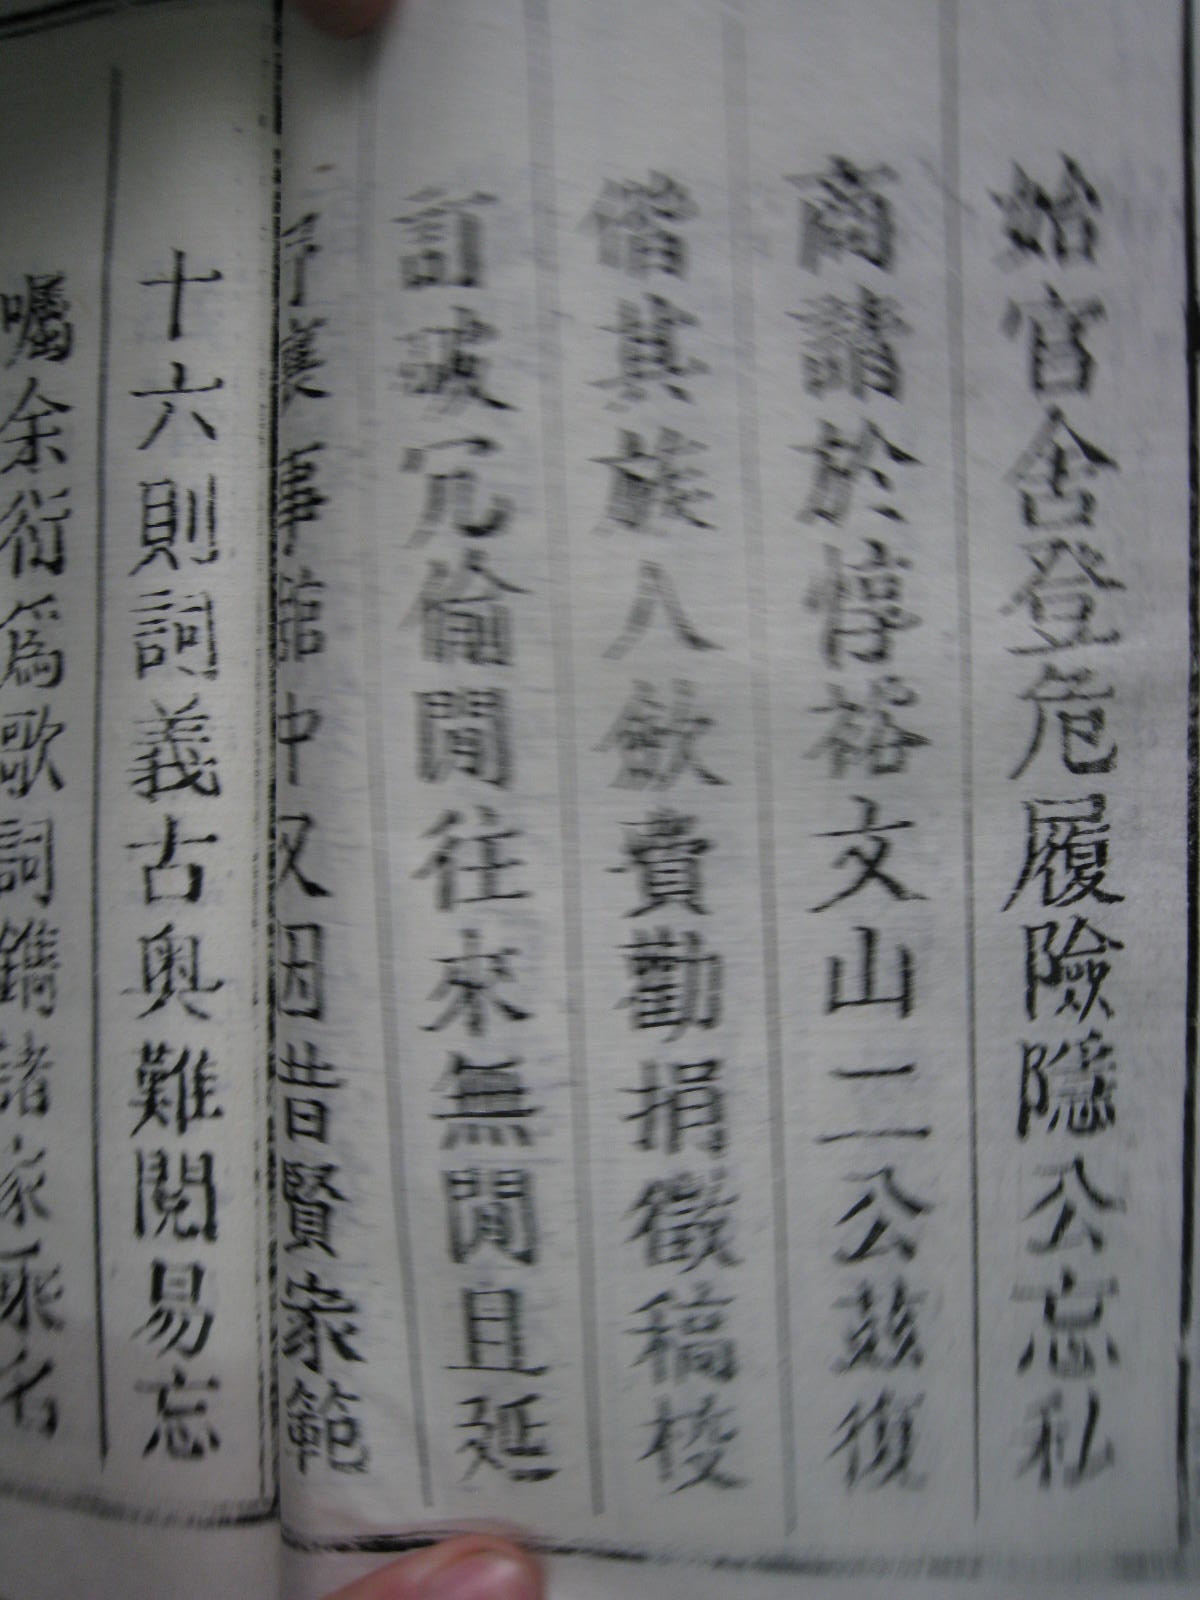 始官舍登危履險隱公忘私
商請於惇裕文山二公茲復
偕其族人斂費勸捐徵稿校
訂破冗偷閒往來無間且延
予襄事館中又因昔賢家範
十六則詞義古奥難閱易忘
囑余衍為歌詞鐫諸家乘名